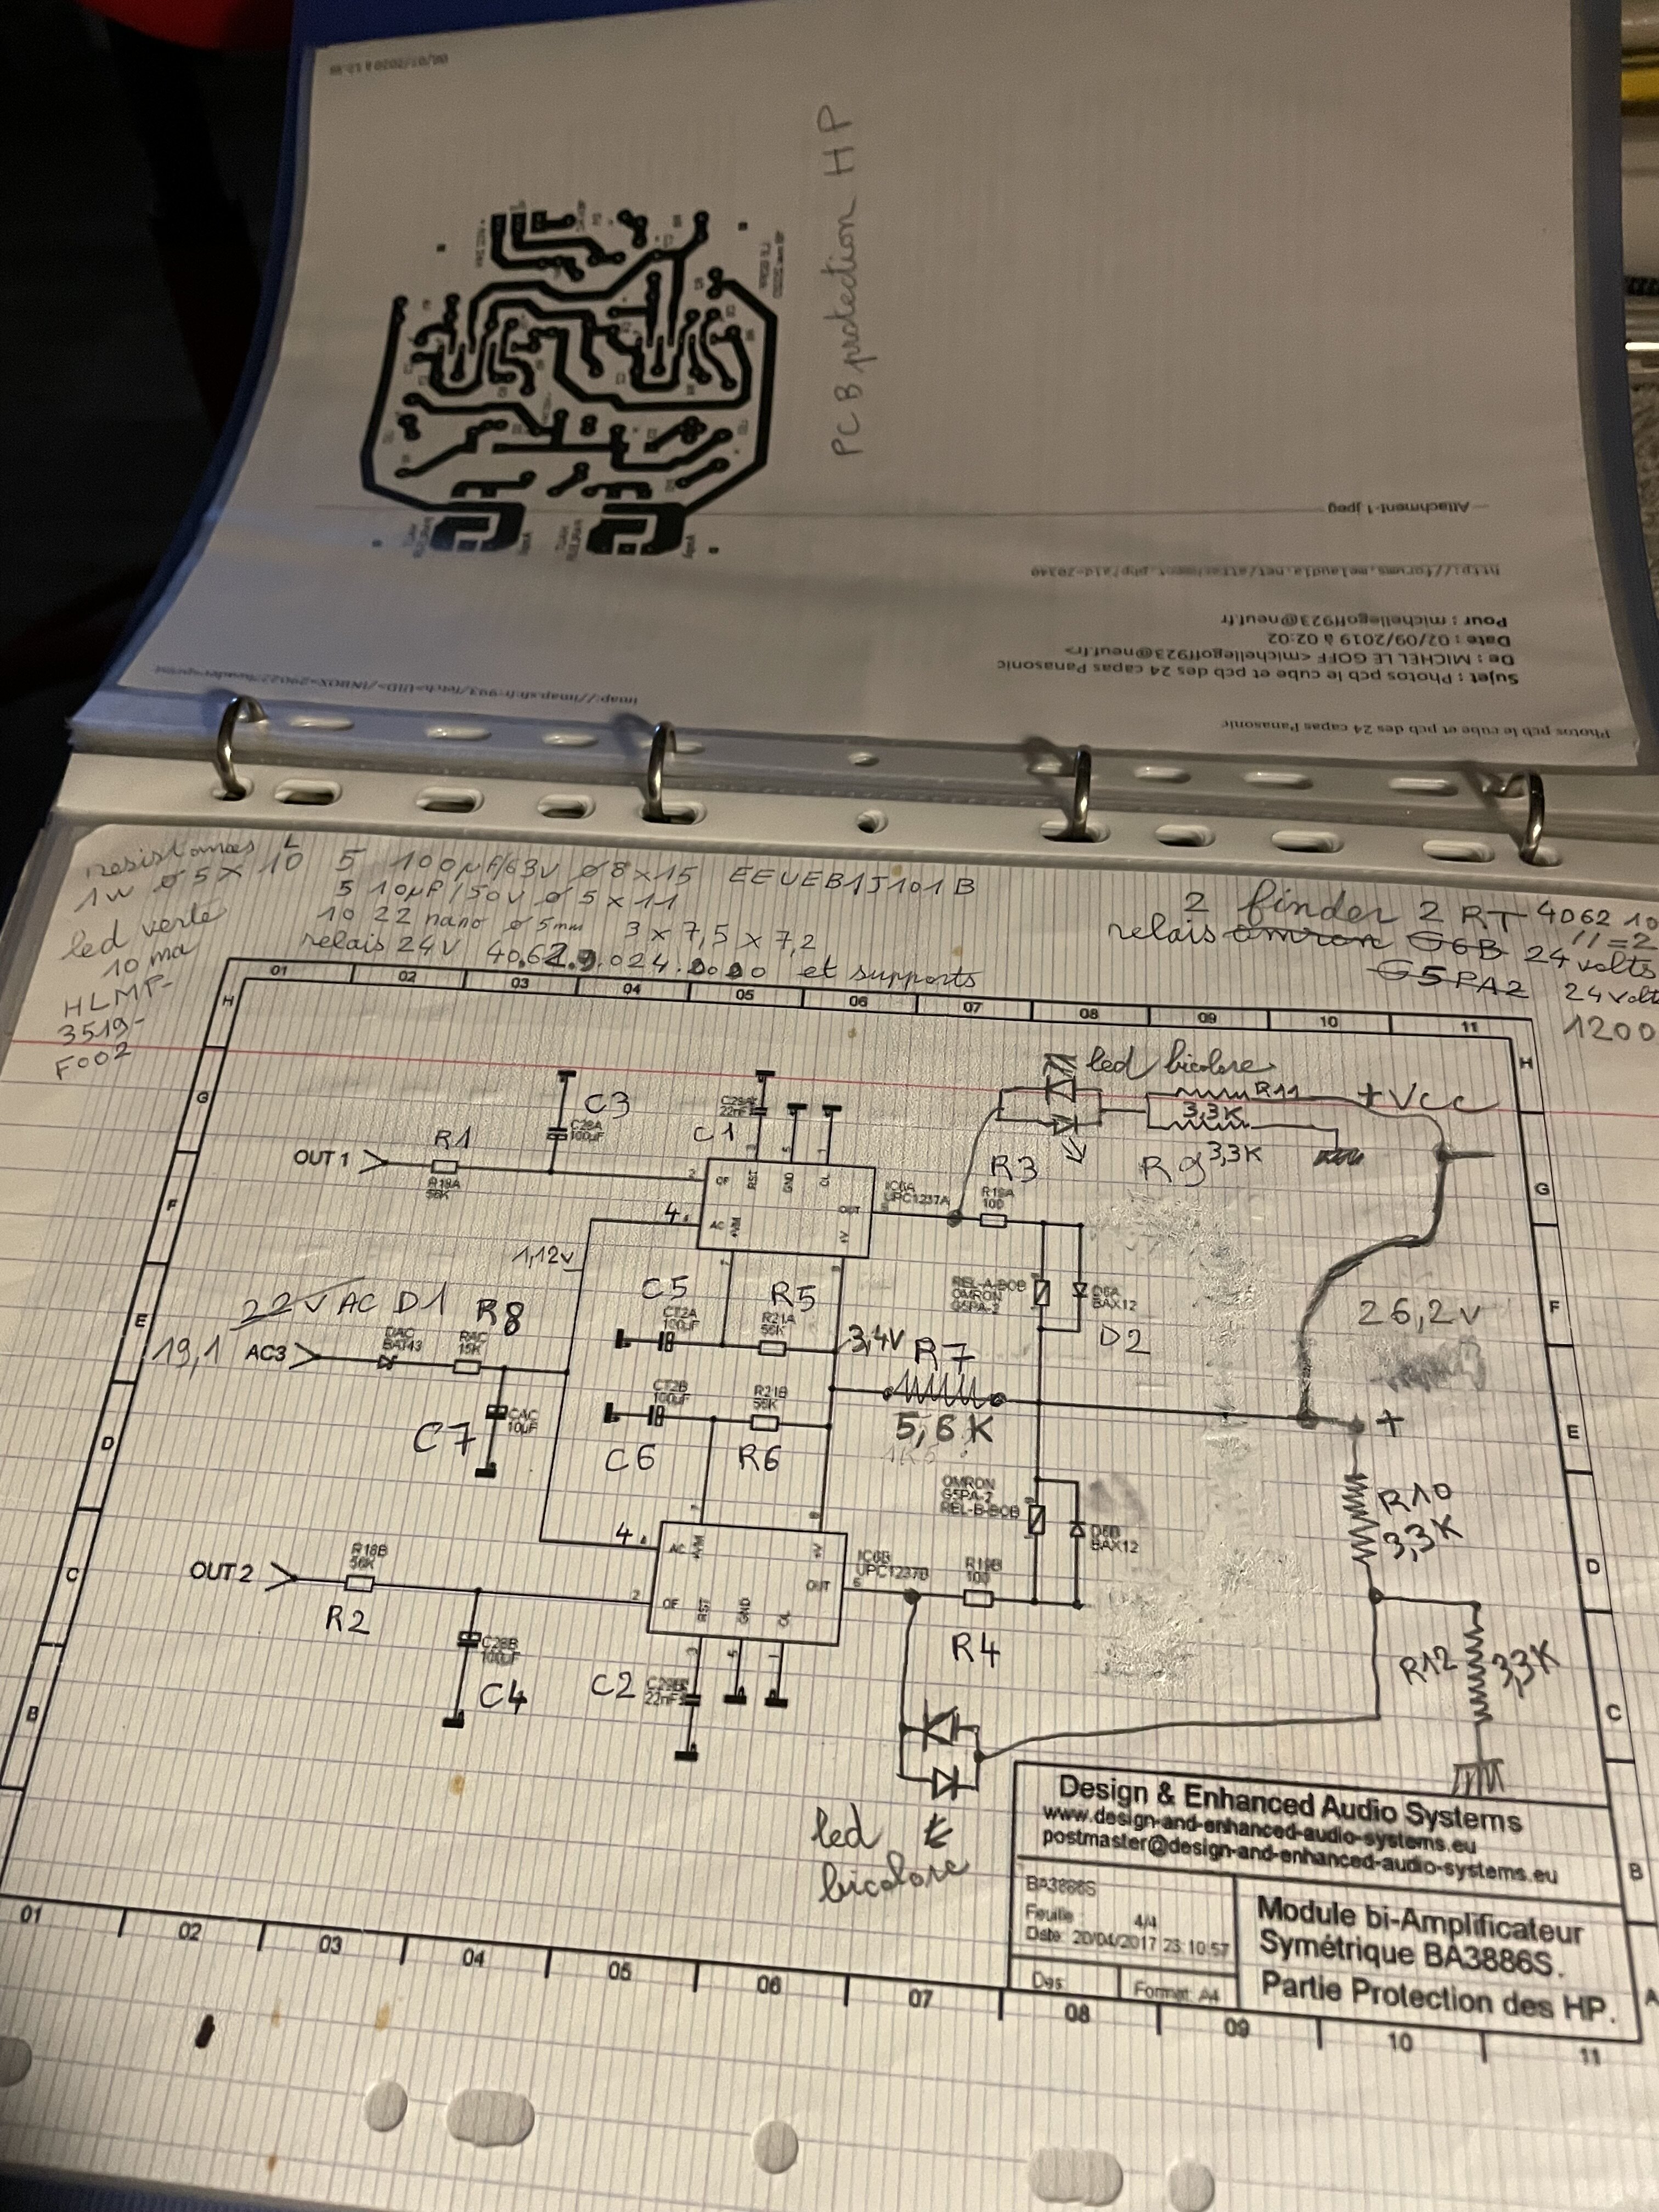 PCB protection HP
Attachment-1.jpeg
Pour : michellegoff923@neuf.fr
Date : 02/09/2019 à 02:02
De : MICHEL LE GOFF <michellegoff923@neuf.fr>
Sujet : Photos pcb le cube et pcb des 24 capas Panasonic
Photos pcb le cube et pcb des 24 capas Panasonic
resistances L
1w ø 5 x 10
led verte
10 ma
HLMP-
3519-
F002
5 100µf/63v ø8x15 EEUEB1J101B
5 10µf/50v ø 5 x 11
10 22 nano ø 5mm 3 x 7,5 x 7,2
relais 24V 40.62.9.024.0000 et supports
2 finder 2 RT 4062 10
relais omron G6B 24 volts
11=2
G5PA2 24 volt
1200
01 02 03 04 05 06 07 08 09 10 11
H
G
F
E
D
C
B
led bicolore
R11
+Vcc
3,3K
R9 3,3K
C3
C28A
100µF
C29A
22nF
C1
OUT 1
R1
R18A
56K
2
OF
RST
GND
OL
AC
+VM
OUT
+V
IC6A
UPC1237A
R3
R19A
100
4
1,12v
22V AC D1
19,1
AC3
DAC
BAT43
R8
RAC
15K
C7
CAC
10µF
C5
CT2A
100µF
R5
R21A
56K
3,4V
R7
5,6K
REL-A-BOB
OMRON
G5PA-2
D6A
BAX12
D2
26,2v
+
CT2B
100µF
C6
R21B
56K
R6
OMRON
G5PA-2
REL-B-BOB
D6B
BAX12
R10
3,3K
R12 3,3K
OUT 2
R18B
56K
R2
C28B
100µF
C4
4
AC
+VM
+V
OUT
OF
RST
GND
OL
2
IC6B
UPC1237B
R19B
100
R4
C2
C29B
22nF
led
bicolore
Design & Enhanced Audio Systems
www.design-and-enhanced-audio-systems.eu
postmaster@design-and-enhanced-audio-systems.eu
BA3886S
Feuille 4/4
Date: 20/04/2017 23:10:57
Des: Format: A4
Module bi-Amplificateur
Symétrique BA3886S.
Partie Protection des HP.
H
G
F
E
D
C
B
A
01 02 03 04 05 06 07 08 09 10 11